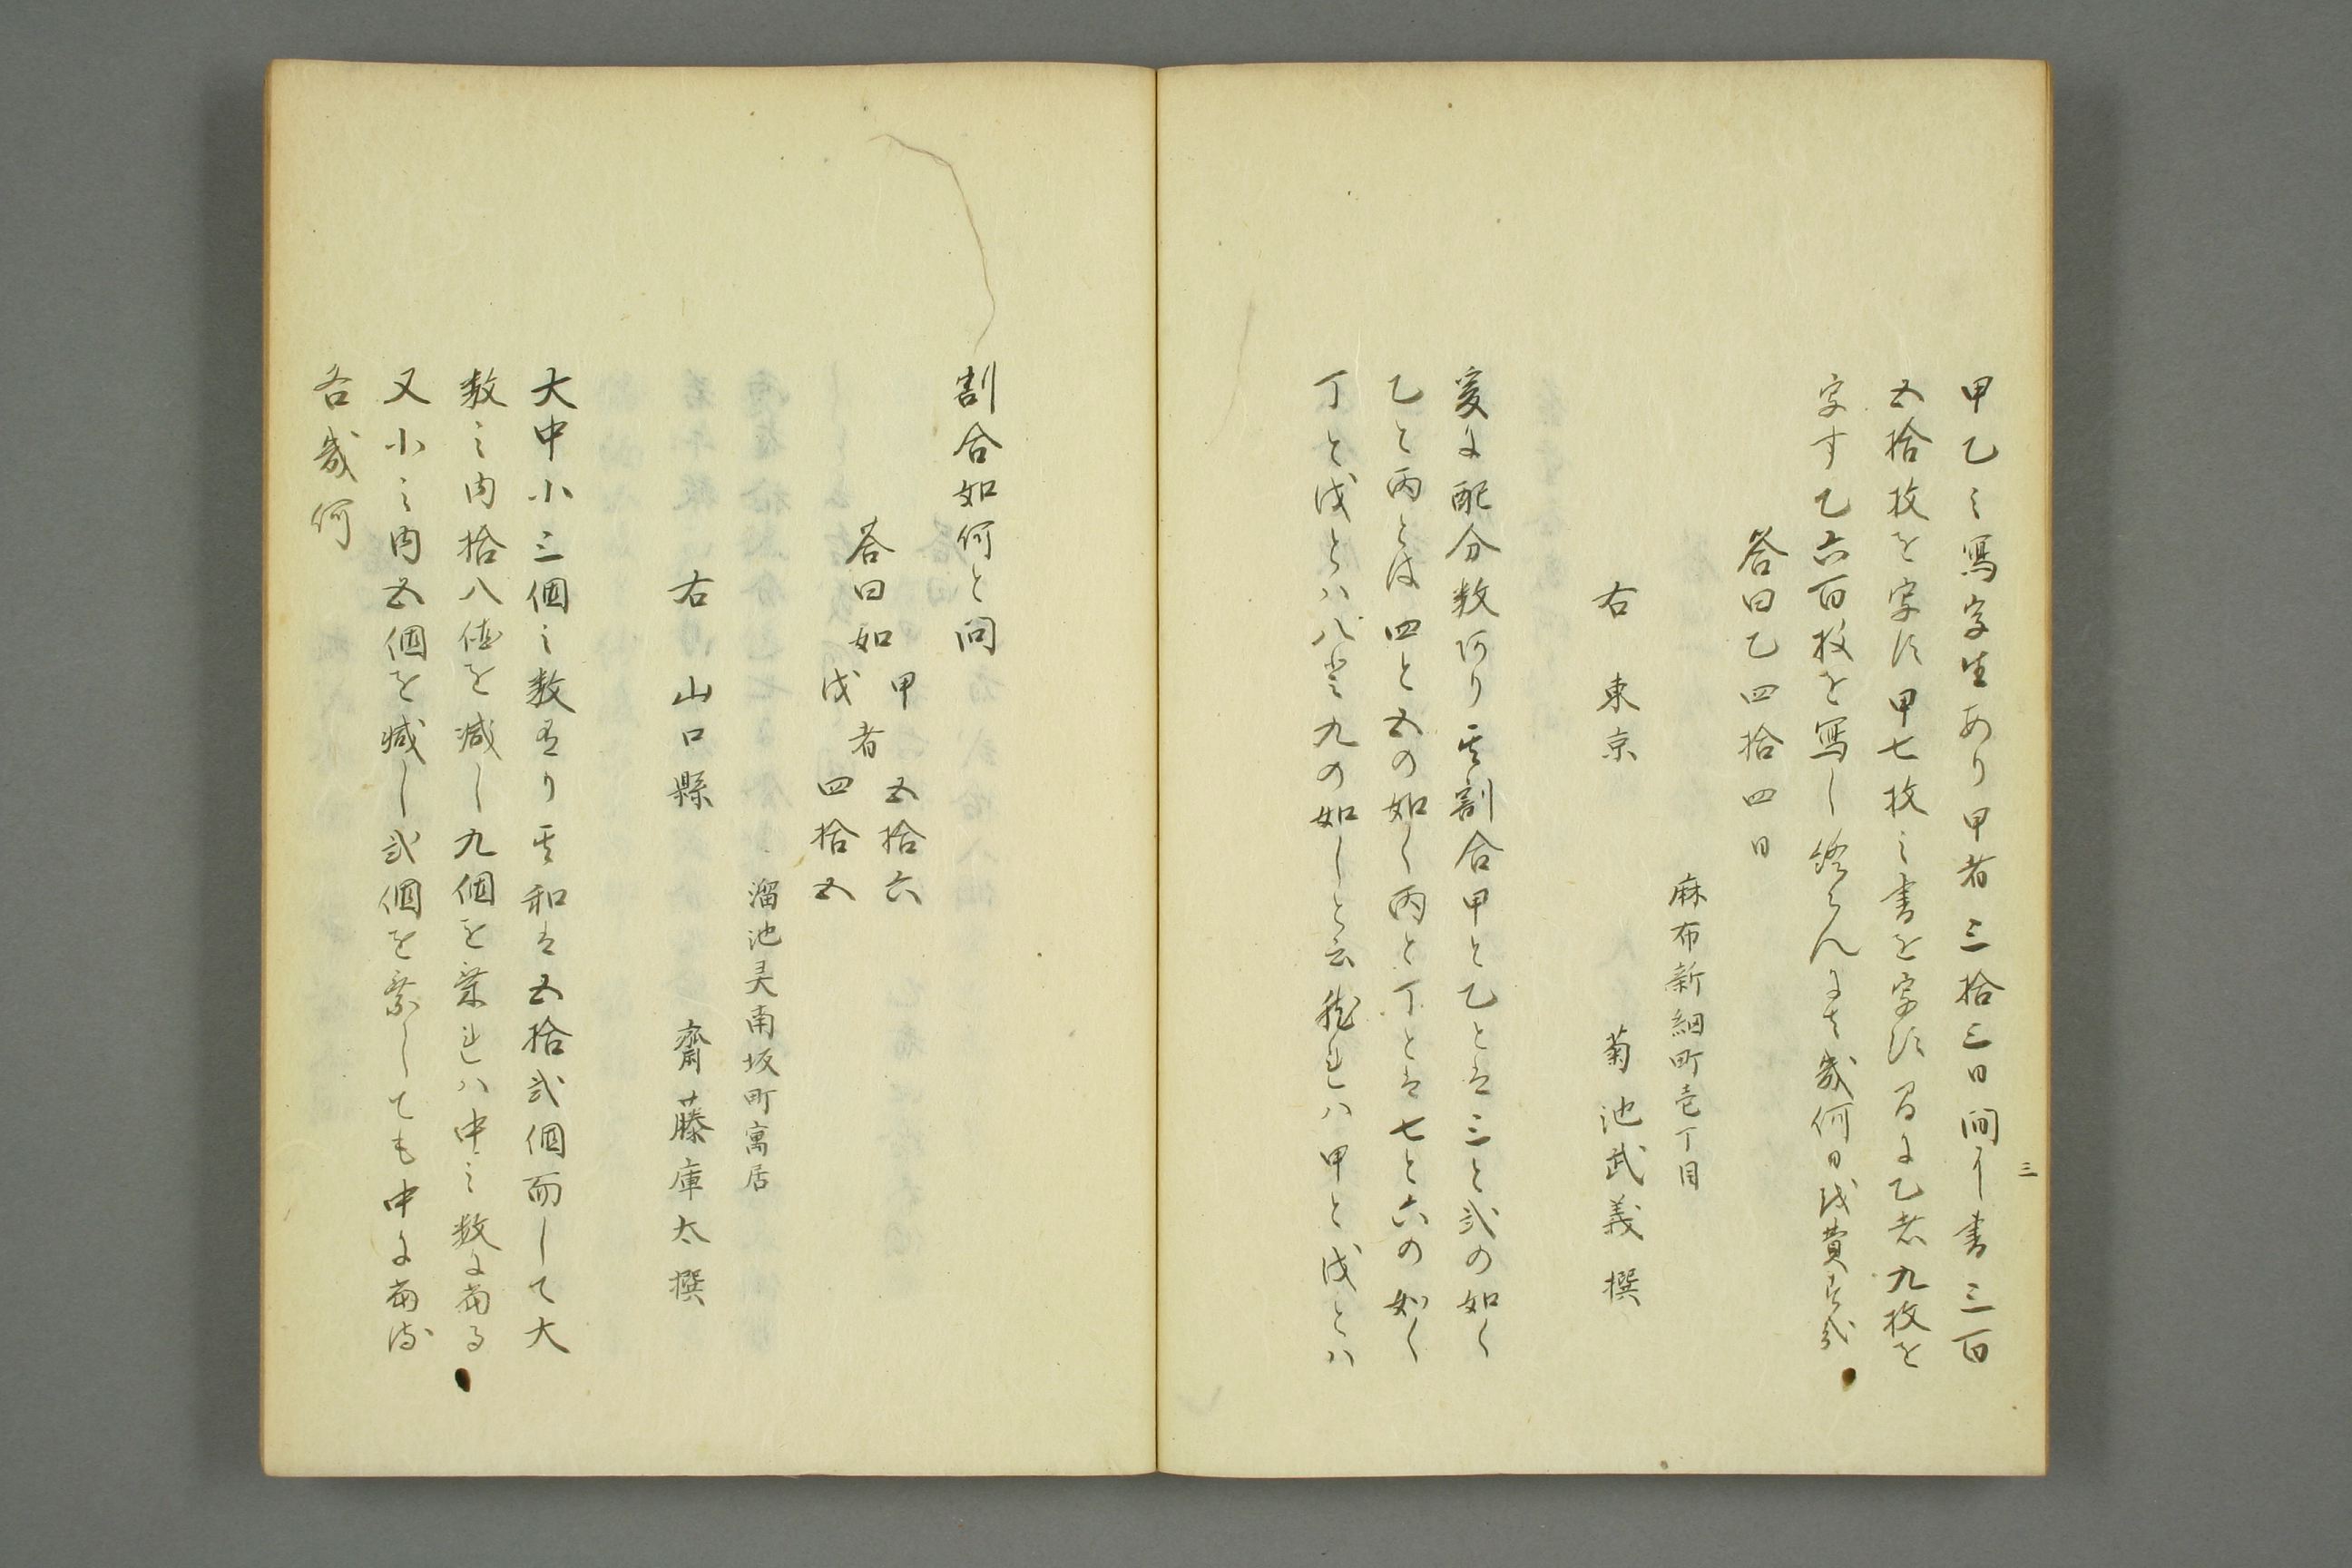 三
甲乙之寫字生あり甲者三拾三日間ニ書三百
五拾枚を字す甲七枚之書を字す間に乙者九枚を
字す乙六百枚を寫し終らんには幾何日を費す哉
答曰乙四拾四日
麻布新網町壱丁目
右 東京 菊池武義撰
爰に配分数あり其割合甲と乙とは三と弐の如く
乙と丙とは四と五の如く丙と丁とは七と六の如く
丁と戊とハ八と九の如しと云然れハ甲と戊とハ
割合如何と問
答曰如甲戊者五拾六四拾五
溜池灵南坂町寓居
右 山口縣 齋藤庫太撰
大中小三個之数有り其和は五拾弐個而して大
数之内拾八個を減し九個を乗れハ中之数に当る
又小之内五個を減し弐個を乗しても中に当る
各幾何